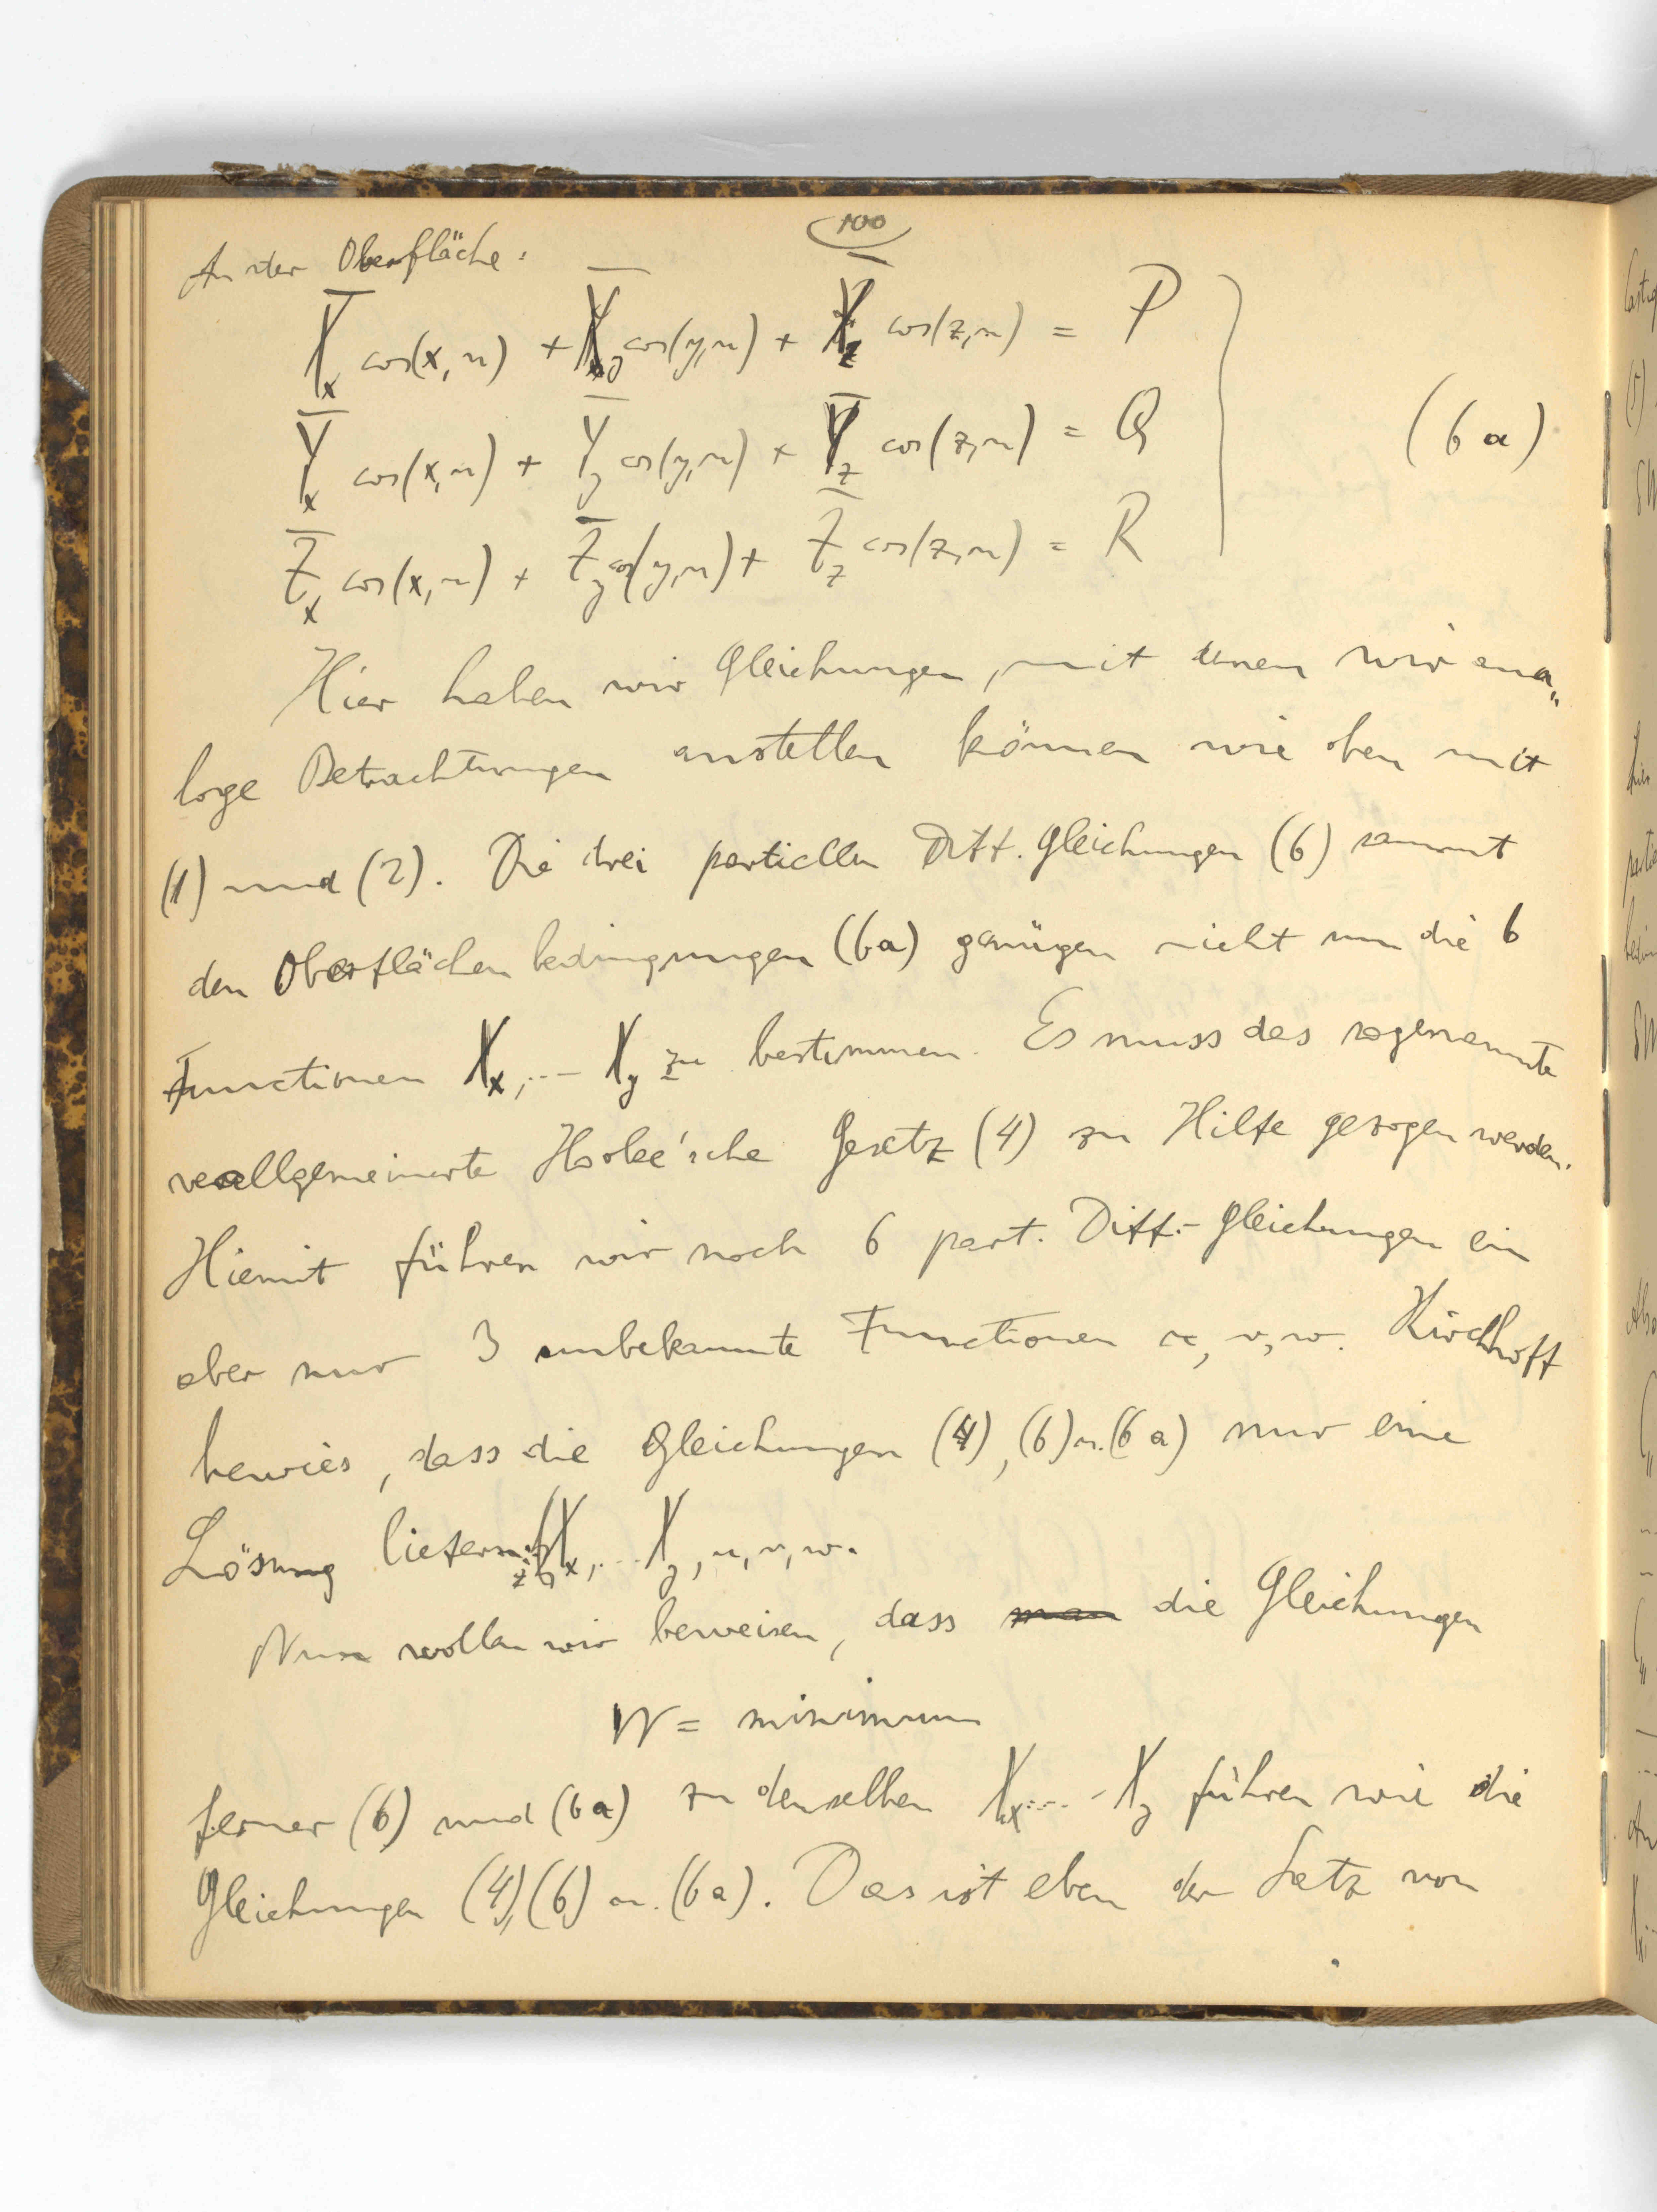 100
An der Oberfläche:
X̅x cos(x,n) + X̅y cos(y,n) + X̅z cos(z,n) = P
Y̅x cos(x,n) + Y̅y cos(y,n) + Y̅z cos(z,n) = Q (6a)
Z̅x cos(x,n) + Z̅y cos(y,n) + Z̅z cos(z,n) = R
Hier haben wir Gleichungen, mit denen wir ana„
loge Betrachtungen anstellen können wie oben mit
(1) und (2). Die drei partiellen Diff. Gleichungen (6) sammt
den Oberflächenbedingungen (6a) genügen nicht um die 6
Functionen Xx, ... Xy zu bestimmen. Es muss das sogenannte
verallgemeinerte Hooke'sche Gesetz (4) zu Hilfe gezogen werden.
Hiemit führen wir noch 6 part. Diff.-Gleichungen ein
aber nur 3 unbekannte Functionen u, v, w. Kirchhoff
bewies, dass die Gleichungen (4), (6) u. (6a) nur eine
Lösung liefern: Xx, ... Xy, u, v, w.
Nun wollen wir beweisen, dass man die Gleichungen
W = minimum
ferner (6) und (6a) zu denselben Xx ... Xy führen wie die
Gleichungen (4), (6) u. (6a). Das ist eben der Satz von